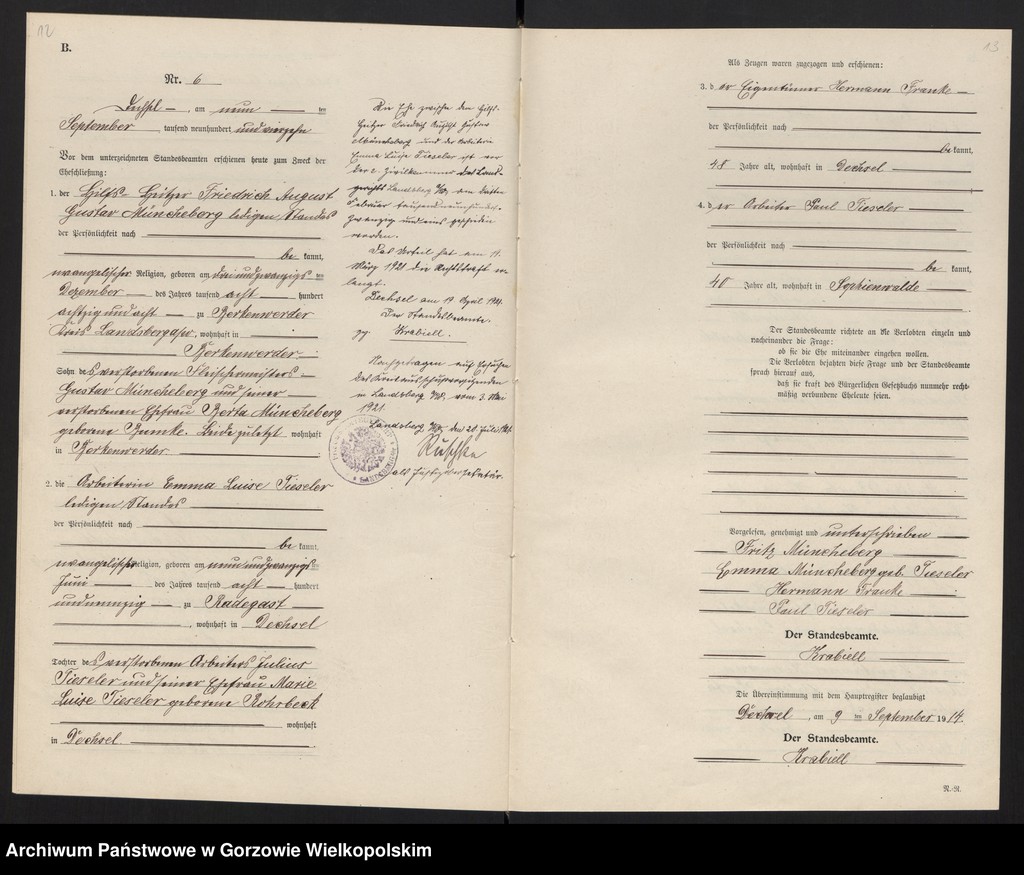 12
B.
Nr. 6
Dechsel, am neun ten
September tausend neunhundert und vierzehn
Vor dem unterzeichneten Standesbeamten erschienen heute zum Zweck der
Eheschließung:
1. der Hilfs-Heitzer Friedrich August
Gustav Müncheberg ledigen Standes
der Persönlichkeit nach
be kannt,
evangelischer Religion, geboren am dreiundzwanzigs ten
Dezember des Jahres tausend acht hundert
achtzig und acht zu Borkenwerder
Kreis Landsberg a/W, wohnhaft in
Borkenwerder
Sohn des verstorbenen Fleischermeisters
Gustav Müncheberg und seiner
verstorbenen Ehefrau Berta Müncheberg
geborene Bumke. Beide zuletzt wohnhaft
in Borkenwerder
2. die Arbeiterin Emma Luise Tieseler
ledigen Standes
der Persönlichkeit nach
be kannt,
evangelischer Religion, geboren am neunundzwanzigs ten
Juni des Jahres tausend acht hundert
undneunzig zu Radegast
, wohnhaft in Dechsel
Tochter des verstorbenen Arbeiters Julius
Tieseler und seiner Ehefrau Marie
Luise Tieseler geborene Rohrbeck
wohnhaft
in Dechsel.
Die Ehe zwischen dem Hilfs-
heitzer Friedrich August Gustav
Müncheberg und der Arbeiterin
Emma Luise Tieseler ist vor
der 2. Zivilkammer des Land-
gerichts Landsberg a/W. am dritten
Februar tausendneunhundert-
zwanzig und eins geschieden
worden.
Das Urteil hat am 11.
März 1921 die Rechtskraft er-
langt.
Dechsel am 19 April 1921.
Der Standesbeamte.
gz. Krabiell.
Nachgetragen auf Ersuchen
des Kreisausschußvorsitzenden
in Landsberg a/W. vom 3. Mai
1921
Landsberg a/W, den 20. Juli 1921.
Ruschke
als Justizobersekretär.
13
Als Zeugen waren zugezogen und erschienen:
3. d er Eigentümer Hermann Franke
der Persönlichkeit nach
be kannt,
48 Jahre alt, wohnhaft in Dechsel
4. d er Arbeiter Paul Tieseler
der Persönlichkeit nach
be kannt,
40 Jahre alt, wohnhaft in Sophienwalde
Der Standesbeamte richtete an die Verlobten einzeln und
nacheinander die Frage:
ob sie die Ehe miteinander eingehen wollen.
Die Verlobten bejahten diese Frage und der Standesbeamte
sprach hierauf aus,
daß sie kraft des Bürgerlichen Gesetzbuchs nunmehr recht-
mäßig verbundene Eheleute seien.
Vorgelesen, genehmigt und unterschrieben
Fritz Müncheberg
Emma Müncheberg geb. Tieseler
Hermann Franke
Paul Tieseler
Der Standesbeamte.
Krabiell
Die Übereinstimmung mit dem Hauptregister beglaubigt
Dechsel, am 9 ten September 1914.
Der Standesbeamte.
Krabiell
N.-R.
Archiwum Państwowe w Gorzowie Wielkopolskim